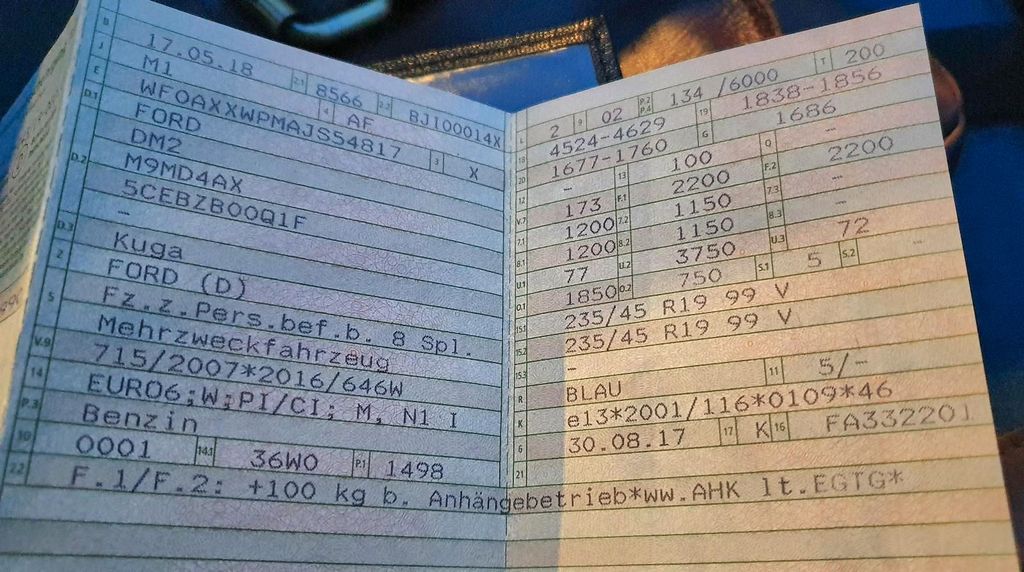 B 17.05.18 2.1 8566 2.2 BJI00014X
J M1 4 AF
E WF0AXXWPMAJS54817 3 X
D.1 FORD
DM2
D.2 M9MD4AX
5CEBZB0OQ1F
–
D.3 Kuga
2 FORD (D)
5 Fz.z.Pers.bef.b. 8 Spl.
Mehrzweckfahrzeug
V.9 715/2007*2016/646W
14 EURO6;W;PI/CI; M, N1 I
P.3 Benzin
10 0001 14.1 36W0 P.1 1498
22 F.1/F.2: +100 kg b. Anhängebetrieb*ww.AHK lt.EGTG*
L 2 9 02 P.2 P.4 134 /6000 T 200
18 4524-4629 19 1838-1856
20 1677-1760 G 1686
12 – 13 100 Q –
V.7 173 F.1 2200 F.2 2200
7.1 1200 7.2 1150 7.3 –
8.1 1200 8.2 1150 8.3 –
U.1 77 U.2 3750 U.3 72
O.1 1850 O.2 750 S.1 5 S.2 –
15.1 235/45 R19 99 V
15.2 235/45 R19 99 V
15.3 –
R BLAU 11 5/-
K e13*2001/116*0109*46
6 30.08.17 17 K 16 FA332201
21